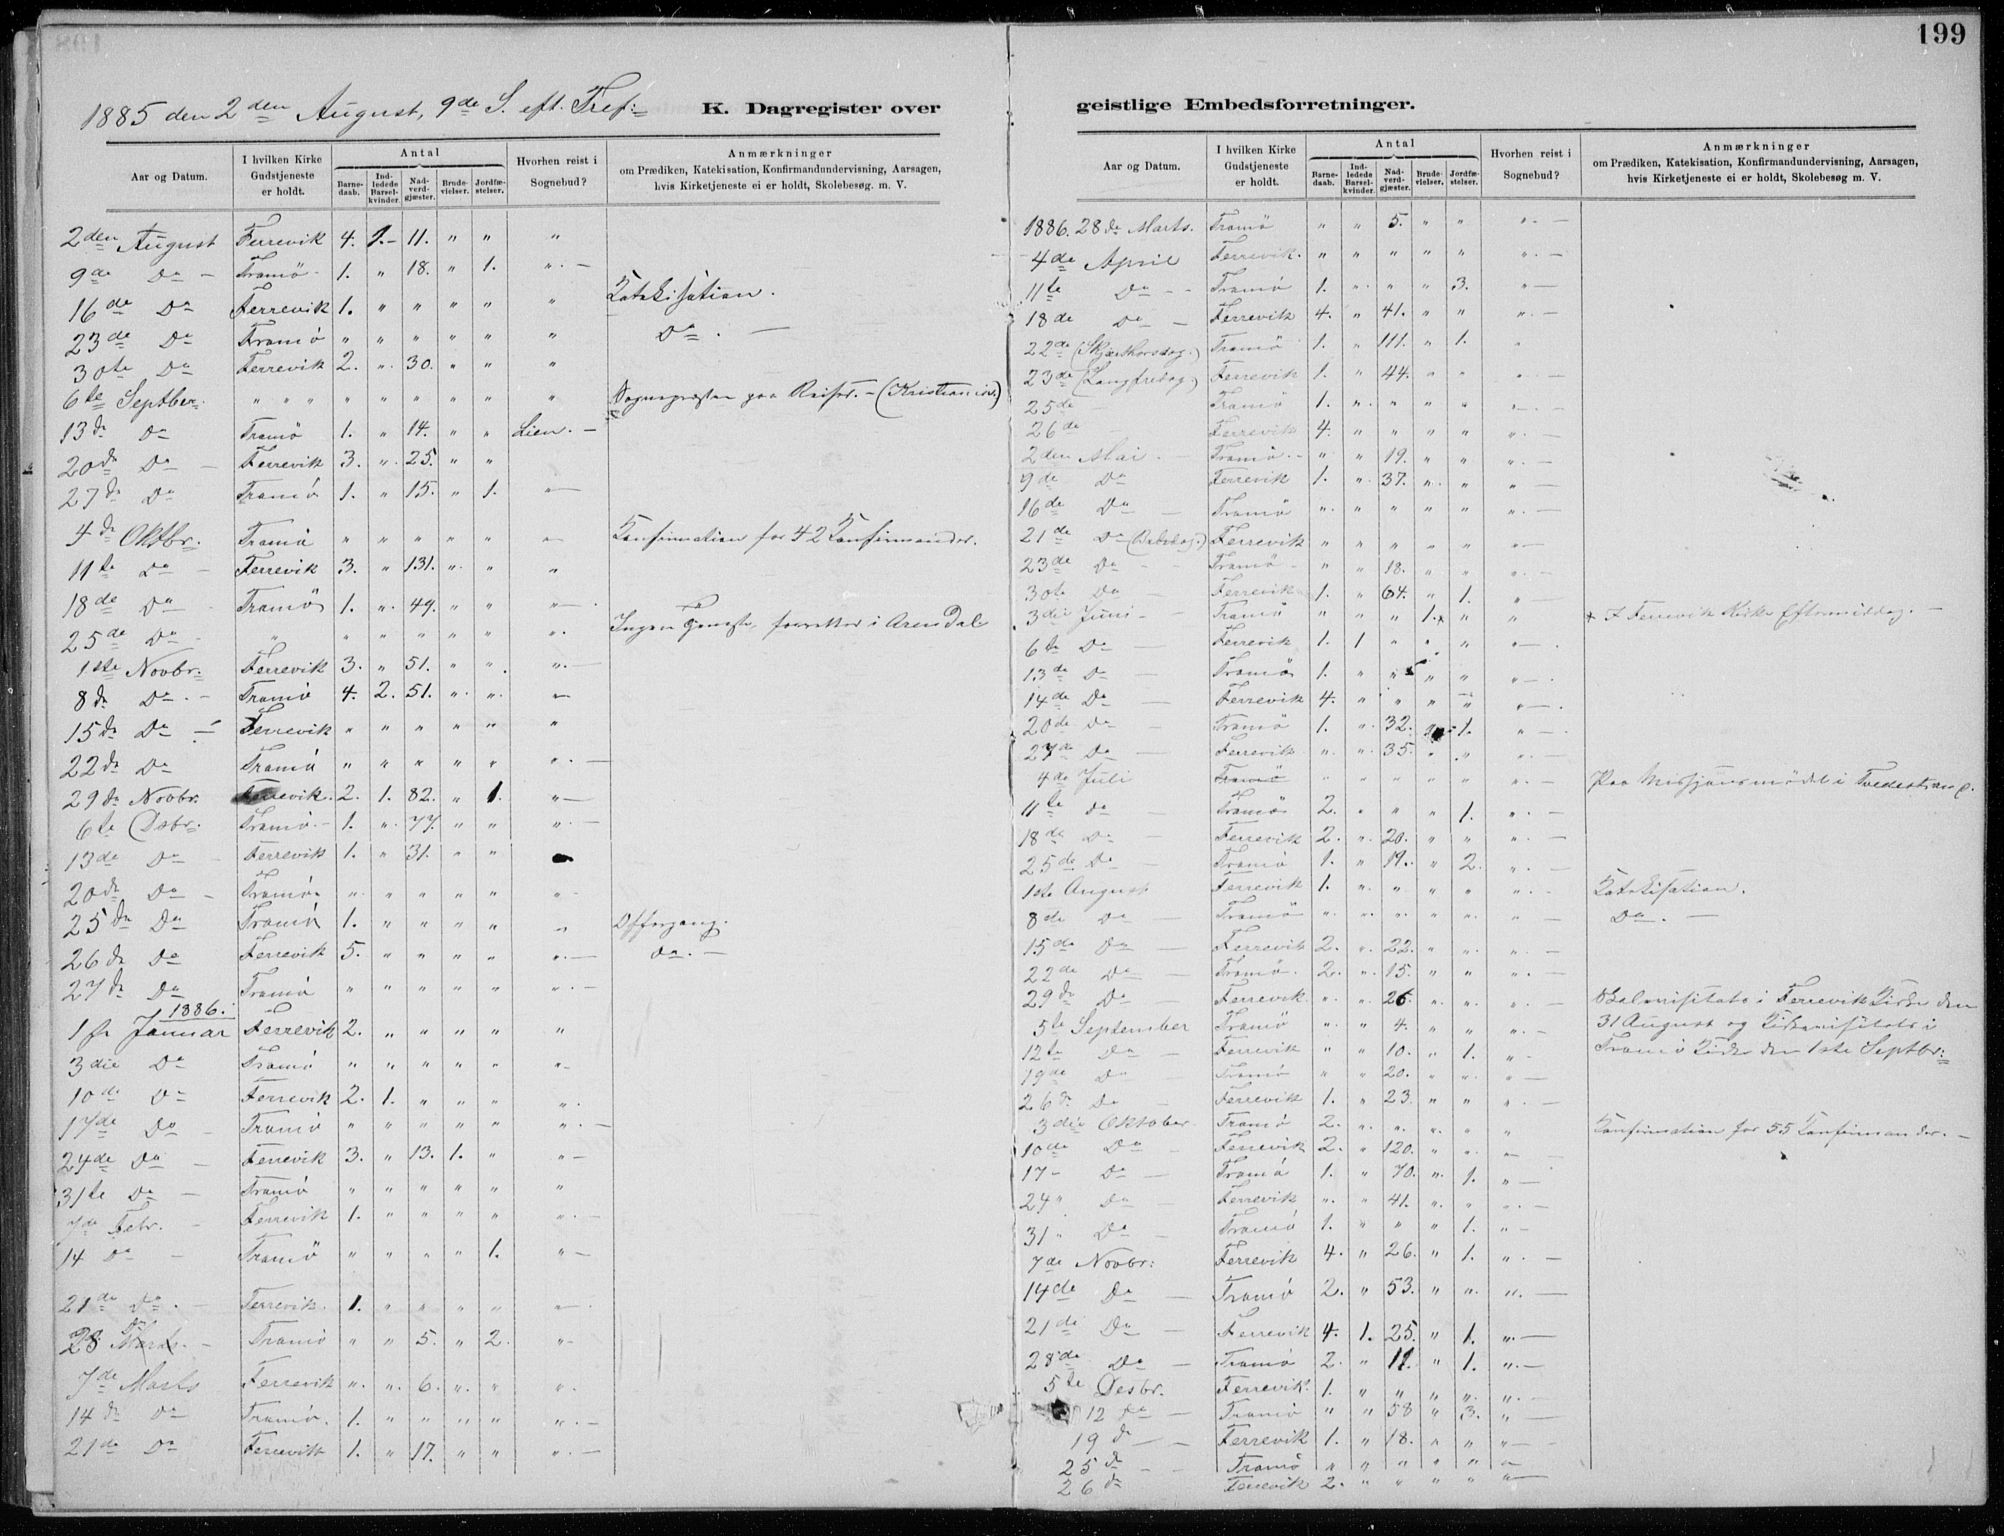 199
1885 den 2den August, 9de S. eft. Tref:
K. Dagregister over geistlige Embedsforretninger.
Aar og Datum. I hvilken Kirke Gudstjeneste er holdt. Antal Barnedaab. Indledede Barselkvinder. Nadverdgjæster. Brudevielser. Jordfæstelser. Hvorhen reist i Sognebud? Anmærkninger om Prædiken, Katekisation, Konfirmandundervisning, Aarsagen, hvis Kirketjeneste ei er holdt, Skolebesøg. m. V.
2den August Færrevik 4. 1.- 11. " " "
9de Do - Tromø 1. " 18. " 1. ". -
16de Do Færrevik 1. " " " " " Katekisation.
23de Do Tromø " " " " " " Do. -
30te Do Færrevik 2. ". 30. " " "
6te Septber. " " " " " " " " " Sognepræsten paa Reiser. - (Kristiania)
13de Do Tromø 1. " 14. " " Lien. -
20de Do - Færrevik 3. ". 25. " "
27de Do Tromø 1. " 15. " 1. "-
4de Oktbr. Tromø " " " " " "- Konfirmation for 42 Konfirmander.
11te Do - Færrevik 3. " 131. ". " "
18de Do - Tromø 1. ". 49. " " "-.
25de Do - " " " " " " ". Ingen Tjeneste, forretter i Arendal
1ste Novbr. Færrevik 3. " 51. " ". ".-
8de Do. - Tromø 4. 2. 51. ". ". "-
15de Do - Færrevik " " " " " "
22de Do Tromø " " " " " ". -
29de Novbr. Færrevik. 2. 1. 82. " 1. "-
6te Dsbr. Tromø.- 1. ". 77. " " ". -
13de Do - Færrevik 1. " 31. " "
20de Do - Tromø. ". " " " " "-
25de Do Tromø 1. " " " " " Offergang.
26de Do Færrevik 5. " " " " ".- do. -
27de Do Tromø " " " " " ". -
1886.
1ste Januar Færrevik 2. " " " " "
3die Do Tromø " " " " " "-
10de Do Færrevik 2. 1. " " " ".
17de Do - Tromø " " " " " ". -
24de Do - Færrevik 3. " 13. 1. " "-
31te Do - Tromø " " " " " "
7de Febr. - Færrevik 1. " " " " ". -
14 Do - Tromø " " " " 1. "-
21de Do. - Færrevik. 1. " " " " "-
28 Do - Tromø " " 5. " 2. "-
7de Marts Færrevik ". ". 6. ". " ".
14de Do Tromø. 1. " " " " ". -
21de Do Færrevik 1. " 17. " " ". -
Aar og Datum. I hvilken Kirke Gudstjeneste er holdt. Antal Barnedaab. Indledede Barselkvinder. Nadverdgjæster. Brudevielser. Jordfæstelser. Hvorhen reist i Sognebud? Anmærkninger om Prædiken, Katekisation, Konfirmandundervisning, Aarsagen, hvis Kirketjeneste ei er holdt, Skolebesøg m. V.
1886. 28de Marts. Tromø " " 5. " " ". -
4de April Færrevik. " " " " " ". -
11te Do - - Tromø 1. ". " " 3. "-
18de Do - Færrevik 4. " 41. " " ". -
22de (Skjærthorsdag.) Tromø 1. " 111. " 1. "
23de (Langfredag.) Færrevik 1. " 44. " " ". -
25de - Tromø 1. ". " " " "-. -
26de Færrevik 4. " " " " ". -
2den Mai. - Tromø.- " " 19. " " ". -
9de Do Færrevik 1. ". 37. ". " "-
16de Do - Tromø ". " " " " ". -
21de Do (Bededag.) Færrevik " " " " " "-
23de Do - - Tromø - " " 18. " " ". -
30te Do - Færrevik 1. " 64. " 1. "-
3die Juni - Tromø " " " 1.x " " x I Færevik Kirke Eftermiddag. -
6te Do - Færrevik 1. 1 " " " "-.
13de Do - Tromø 1. " " " " "-.
14de Do - Færrevik 4. " " " " "-.
20de Do - Tromø 1. ". 32. 1. "-.
27de Do - Færrevik ". ". 35. " " "-
4de Juli Tromø " " " " " ". - Paa Missjonsmødet i Tvedestrand.
11te Do - Tromø 2. " " " 1. ". -
18de Do - Færrevik 2. ". 20. " " ". -
25de Do - Tromø 1. " 19. " 2. ". -
1ste August Færrevik 1. ". " " " ". - Katekisation.
8de Do - Tromø ". ". ". ". ". " Do. -
15de Do - Færrevik 2. ". 22. " ". ". -
22de Do - Tromø. 2. ". 15. " " ". -
29de Do - Færrevik. ". ". 26. ". ". ". - Skolevisitats i Færrevik Kirke den
5te September Tromø " " 4. " " ". - 31 August og Kirkevisitats i
12te Do - Færrevik " " 10. " 1. "- Tromø Kirke den 1ste Septbr.
19de Do - Tromø " " 20. " ". "-
26de Do - Færrevik 1. " 23. " " ". -
3die Oktober. Tromø 2. ". ". " " " Konfirmation for 55 Konfirmander. -
10de Do - Færrevik 2. " 120. " " "-
17- Do - Tromø 1. " 70. ". 1. "-
24" Do - Færrevik ". " 41. ". ". ". -
31" Do - Tromø 1. " " " 1. "-
7de Novbr: Færrevik 4. " 26. " 1. ". -
14de Do - Tromø 2. " 53. " ". ". -
21de Do - Færrevik 4. 1. 25. " 1. ".-
28de Do - Tromø 2. " 11. " 1. ".-
5te Desbr. Færrevik. 1. " " " ". ". -
12 Do - Tromø " " 58 " 3. "-
19 de - - Færrevik 1. " 18. " " "-
25 de - - Tromø " " " " " "-
26 de Færrevik 2. " " " " "-